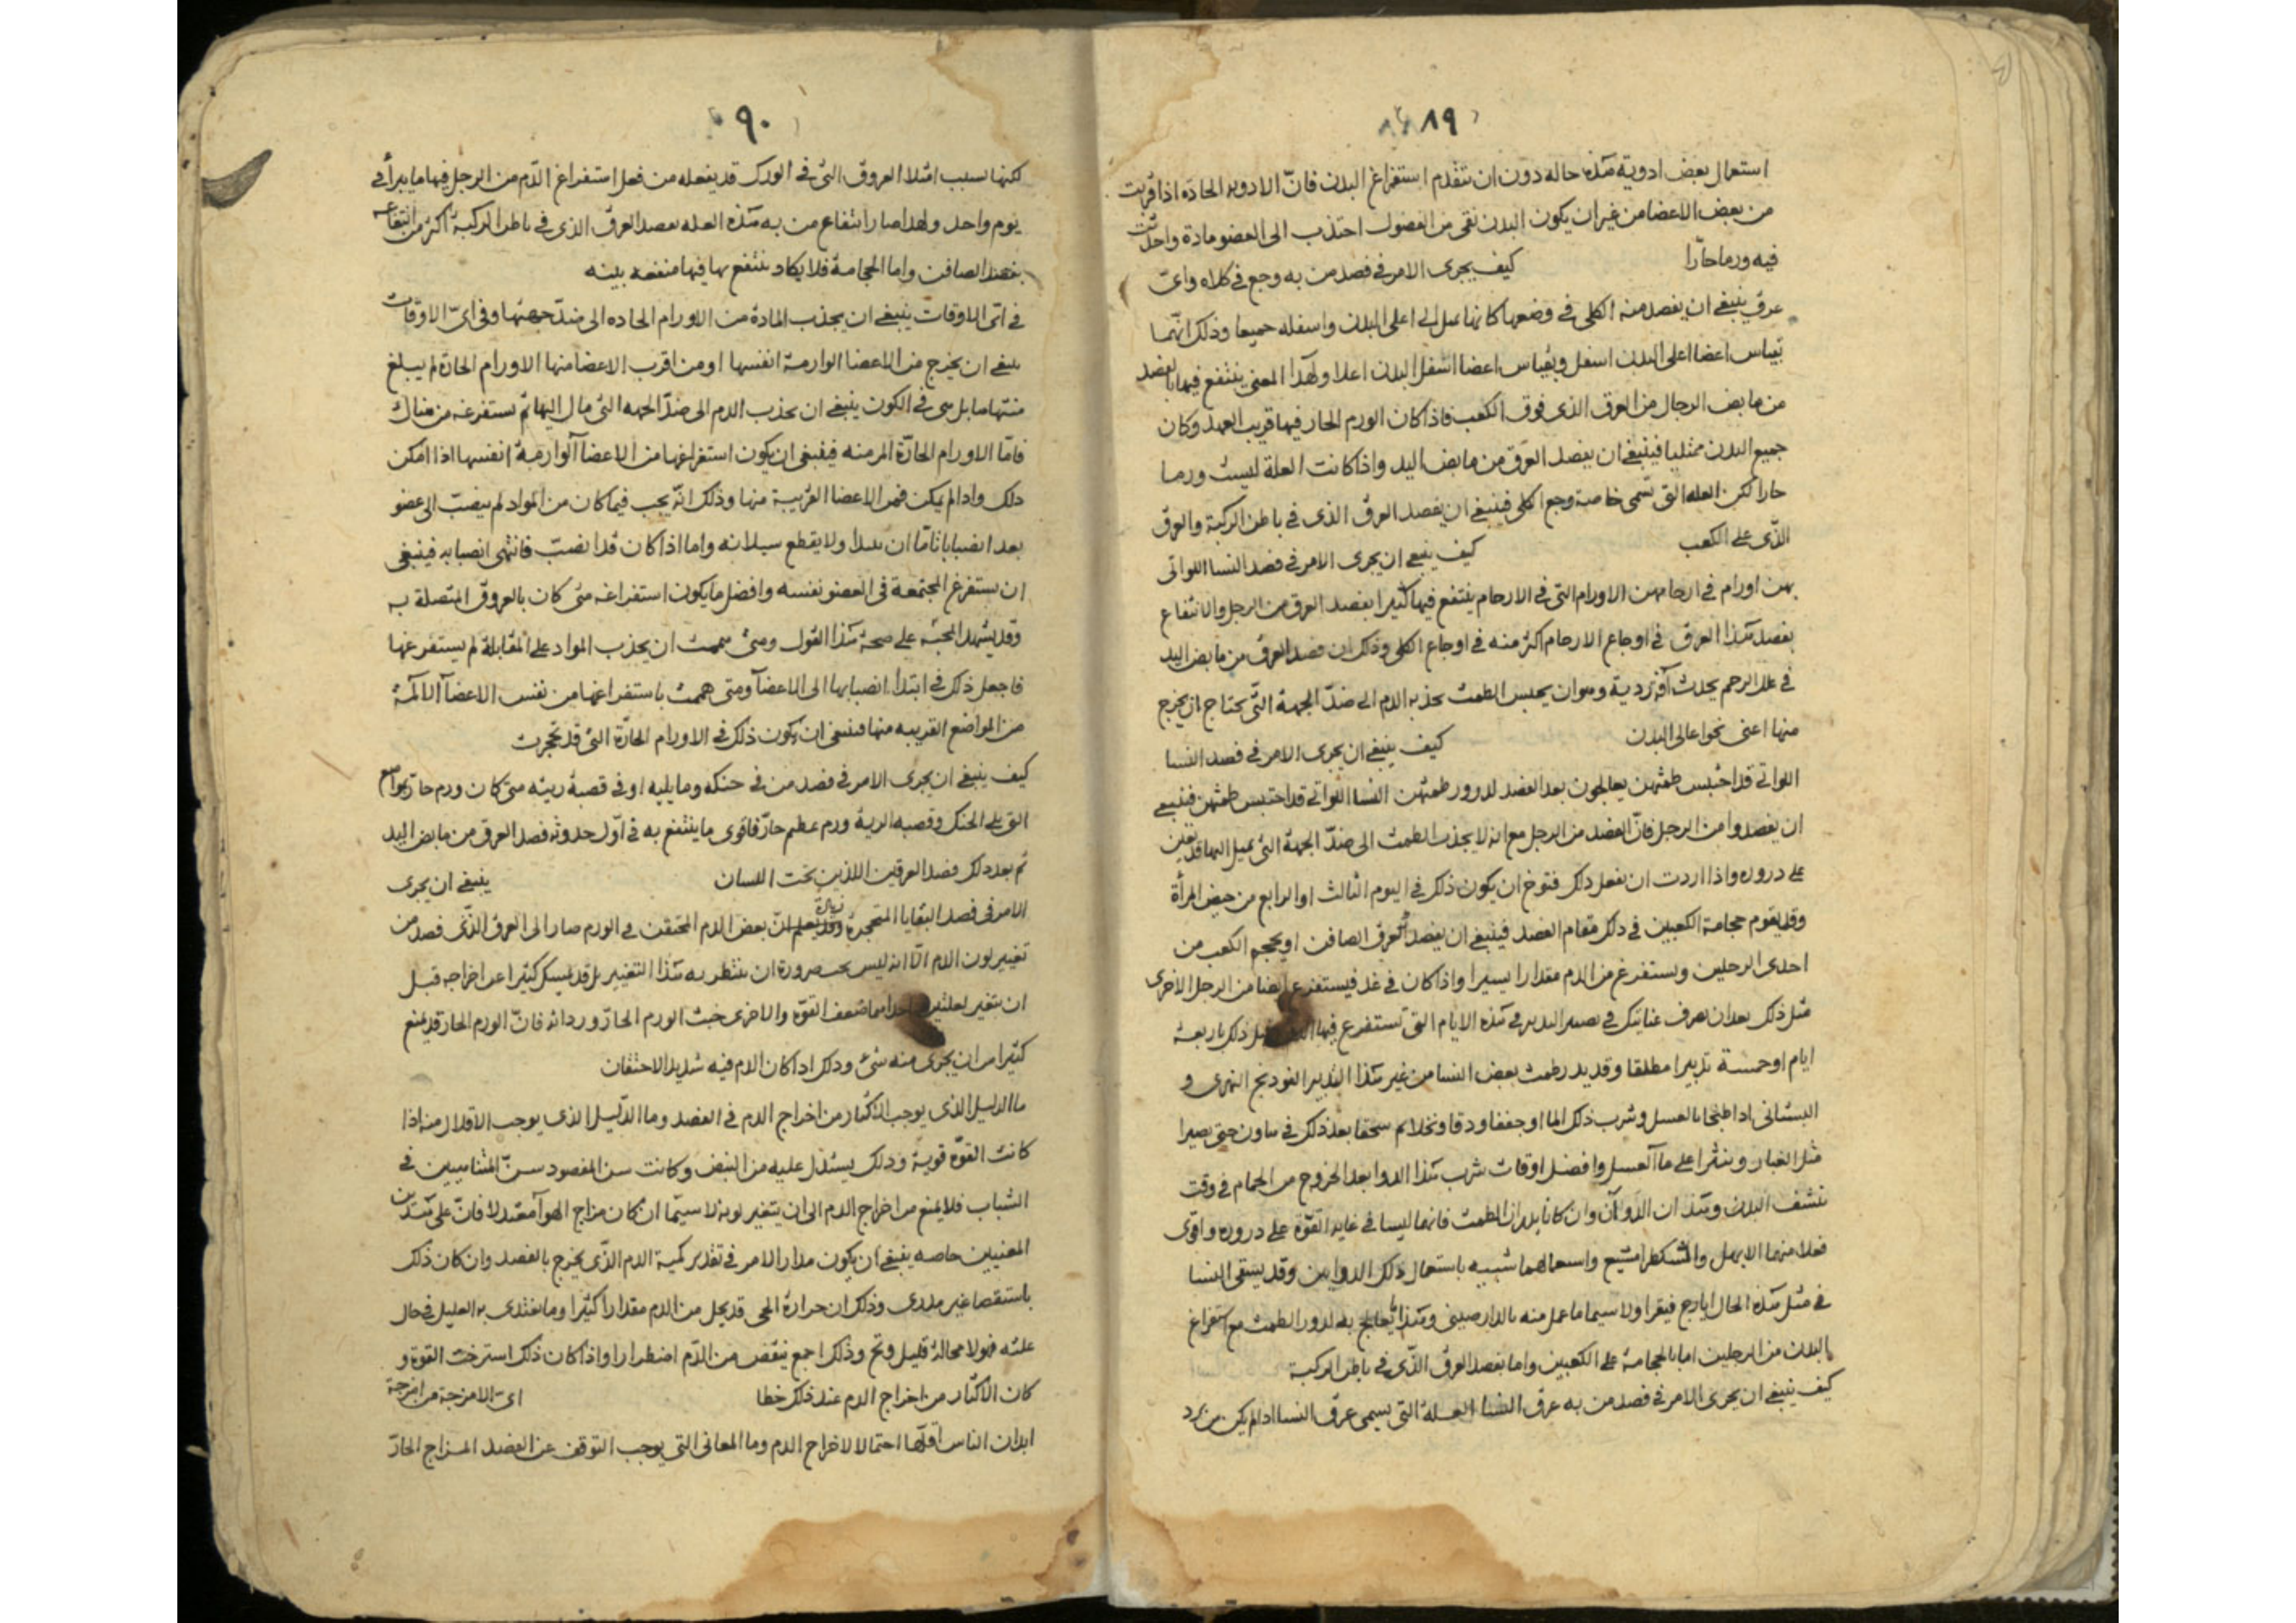 ٨٩
استعمال بعض ادوية هذه حاله دون ان تتقدم استفراغ البدن فانّ الادويه الحادّه اذا قربت
من بعض الاعضا من غير ان يكون البدن نقى من الفضول احتذب الى العضو مادة واحدثت
فيه ورما حارّا كيف يجرى الامر فى فصد من به وجع فى كلاه واىّ
عرق ينبغى ان يفصد منه الكلى فى وضعها كانها تميل الى اعلى البدن واسفله جميعا وذلك انّما
بقياس اعضا اعلى البدن اسفل وبقياس اعضا اسفل البدن اعلا ولهذا المعنى ينتفع فيها بالفصد
من مابض الرجل من العرق الذى فوق الكعب فاذا كان الورم الحار فيها قريب العهد وكان
جميع البدن ممتليا فينبغى ان يفصد العرق من مابض اليد واذا كانت العلة ليست ورما
حارا لكن العله التى تسمى خاصة وجع الكلى فينبغى ان يفصد العرق الذى فى باطن الركبة والعرق
الذّى على الكعب كيف ينبغى ان يجرى الامر فى فصد النسا اللواتى
بهن اورام فى ارحامهن الاورام التى فى الارحام ينتفع فيها كثيرا بفصد العرق من الرجل والانتفاع
بفصد هذا العرق فى اوجاع الارحام اكثر منه فى اوجاع الكلى وذلك ان فصد العرق من مابض اليد
فى علل الرحم يحدث آفة ردية وهو ان يحبس الطمث بجذبه الدم الى ضدّ الجهة التّى يحتاج ان يخرج
منها اعنى نحو اعالى البدن كيف ينبغى ان يجرى الامر فى فصد النسا
اللواتى قد احتبس طمثهن يعالجون بعد الفصد لدرور طمثهن النسا اللواتى قد احتبس طمثهن فينبغى
ان يفصدوا من الرجل فانّ الفصد من الرجل مع انه لا يجذب الطمث الى ضدّ الجهة التى يميل اليها قد يعين
على دروره واذا اردت ان تفعل ذلك فتوخ ان يكون ذلك فى اليوم الثالث او الرابع من حيض المرأة
وقد يقوم حجامة الكعبين فى ذلك مقام الفصد فينبغى ان يفصد العرق الصافن او يحجم الكعب من
احدى الرجلين ويستفرغ من الدم مقدارا يسيرا واذا كان فى غد فيستفرغ ايضا من الرجل الاخرى
مثل ذلك بعد ان تصرف عنايتك فى تدبير البدن فى هذه الايام التى تستفرغ فيها الدم قبل ذلك باربعة
ايام او خمسة تدبيرا مطلقا وقد يدر طمث بعض النسا من غير هذا التدبير الفودنج النهرى و
البستانى اذا طبخا بالعسل وشرب ذلك الما او جففا ودقا ونخلا ثم سحقا بعد ذلك فى هاون حتى يصيرا
مثل الغبار وينثرا على ما العسل وافضل اوقات شرب هذا الدوا بعد الخروج من الحمام فى وقت
تنشف البدن وهذ ان الدوآن وان كانا يدران الطمث فانهما ليسا فى غاية القوّة على دروره واقوى
فعلا منهما الابهل والمشكطرامشيع واستعمالهما شبيه باستعمال ذلك الدوايين وقد يسقى النسا
فى مثل هذه الحال ايارج فيقرا ولا سيما ما عمل منه بالدارصينى وهذا يعالج به لدرور الطمث مع استفراغ
البدن من الرجلين اما بالحجامة على الكعبين واما بفصد العرق الذّى فى باطن الركبة
كيف ينبغى ان يجرى الامر فى فصد من به عرق النسا العلة التى تسمى عرق النسا اذا لم يكن من برد
٩٠
لكنها بسبب امتلا العروق التى فى الورك قد يفعله من فعل استفراغ الدّم من الرجل فيها ما يبرأ فى
يوم واحد ولهذا صار انتفاع من به هذه العله بفصد العرق الذى فى باطن الركبة اكثر من انتفاعه
بفصد الصافن واما الحجامة فلا يكاد ينتفع بها فيها منفعه بينه
فى اىّ الاوقات ينبغى ان يجذب المادة من الاورام الحاده الى ضدّ جهتها وفى اىّ الاوقات
ينبغى ان يخرج من الاعضا الوارمة انفسها او من اقرب الاعضا منها الاورام الحارة لم يبلغ
منتهاها بل هى فى الكون ينبغى ان يجذب الدم الى ضدّ الجهه التى مال اليها ثم يستفرغه من هناك
فامّا الاورام الحارّة المزمنه فينبغى ان يكون استفراغها من الاعضا الوارمة انفسها اذا امكن
ذلك واذا لم يمكن فمن الاعضا القريبة منها وذلك انّه يجب فيما كان من المواد لم ينصبّ الى عضو
بعد انصبابا تامّا ان يبدا ولا يقطع سيلانه واما اذا كان قد انصبّ فانتهى انصبابه فينبغى
ان يستفرغ المجتمعة فى العضو نفسه وافضل ما يكون استفراغه متى كان بالعروق المتّصلة به
وقد يشهد المحنة على صحة هذا القول ومتى هممت ان يجذب المواد على المقابلة ثم يستفرغها
فاجعل ذلك فى ابتدا انصبابها الى الاعضا ومتى هممت باستفراغها من نفس الاعضا الالمة
من المواضع القريبه منها فينبغى ان يكون ذلك فى الاورام الحارّة التى قد تحجرت
كيف ينبغى ان يجرى الامر فى فصد من فى حنكه وما يليه او فى قصبة ريته متى كان ورم حار المواضع
التى تلى الحنك وقصبه الرية ورم عظيم حارّ فاقوى ما ينتفع به فى اوّل حدوثه فصد العرق من مابض اليد
ثم بعد ذلك فصد العرقين اللذين تحت اللسان ينبغى ان يجرى
الامر فى فصد البقايا المتحجرة وقد يعلم انّ بعض الدم المحتقن فى الورم صار الى العرق الذّى فصد من
تغيير لون الدم الّا انه ليس يجب ضرورة ان ينتظر به هذا التغيير بل قد يمسك كثيرا عن اخراجه قبل
ان يتغير لعلتين احداهما ضعف القوّة والاخرى خبث الورم الحارّ ورداته فانّ الورم الحار قد يمنع
كثيرا من ان يجرى منه شئ وذلك اذا كان الدم فيه شديد الاحتقان
ما الدليل الذى يوجب الاكثار من اخراج الدم فى الفصد وما الدّليل الذى يوجب الاقلال منه اذا
كانت القوّة قوية وذلك يستدل عليه من النبض وكانت سن المفصود سنّ المتناهيين فى
الشباب فلا يمنع من اخراج الدم الى ان يتغير لونه لا سيّما ان كان مزاج الهوآ معتدلا فانّ على هذين
المعنيين خاصه ينبغى ان يكون مدار الامر فى تقدير كمية الدم الذّى يخرج بالفصد وان كان ذلك
باستقصا غير وذلك ان حرارة الحمى قد تحل من الدم مقدارا كثيرا وما يغتذى به العليل فى حال
علته فهو لا محالة قليل وتح وذلك اجمع ينقص من الدّم اضطرارا واذا كان ذلك استرخت القوة و
كان الاكثار من اخراج الدم عند ذلك خطا اىّ الامزجة من امزجة
ابدان الناس اقلّها احتمالا لاخراج الدم وما المعانى التى يوجب التوقف عن الفصد المزاج الحارّ